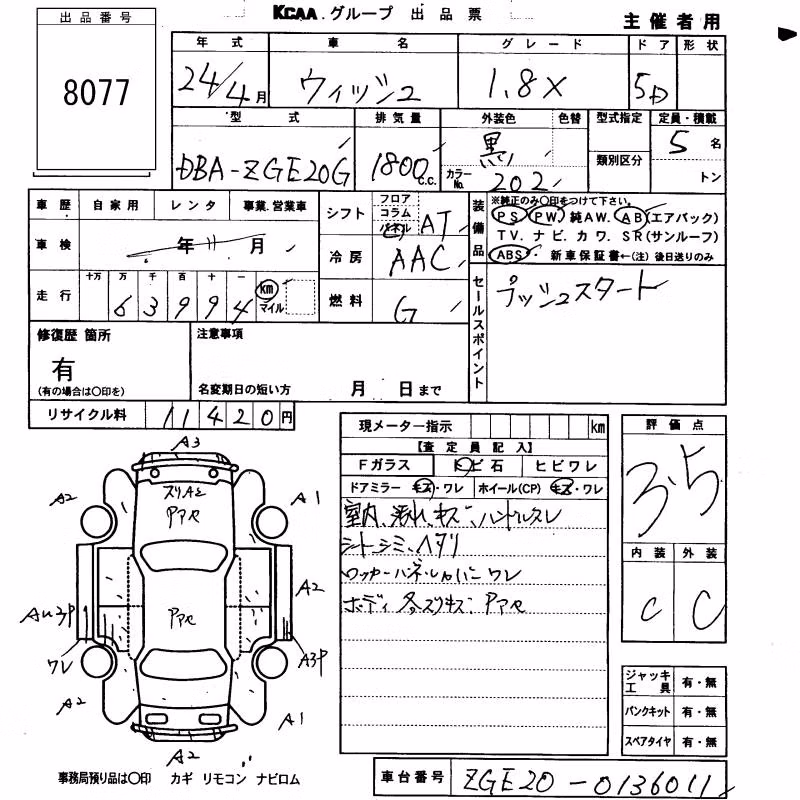 KCAA グループ 出品票
主催者用
出品番号
8077
年式 車名 グレード ドア 形状
24/4月 ウィッシュ 1.8X 5D
型式 排気量 外装色 色替 型式指定 定員・積載
DBA-ZGE20G 1800c.c. 黒 カラーNo. 202 類別区分 5名 トン
車歴 自家用 レンタ 事業.営業車
車検 年 11月
走行 十万 万 千 百 十 一
63994 km マイル
シフト フロア コラム パネル AT
冷房 AAC
燃料 G
装備品 ※純正のみ〇印をつけて下さい。
PS PW 純AW. AB(エアバック)
TV. ナビ. カワ. SR(サンルーフ)
ABS 新車保証書←(注)後日送りのみ
セールスポイント
プッシュスタート
修復歴 箇所
有
(有の場合は〇印を)
注意事項
名変期日の短い方 月 日まで
リサイクル料 11420円
現メーター指示 km
【査定員記入】
Fガラス トビ石 ヒビワレ
ドアミラー キズ・ワレ ホイール(CP) キズ・ワレ
室内、汚れ、キズ、ハンドルスレ
シートシミ、ヘタリ
ロッカーパネル、レ ワレ
ボディ 各スリキズ
評価点
3.5
内装 外装
C C
ジャッキ工具 有・無
パンクキット 有・無
スペアタイヤ 有・無
A3
A2
A1
A2
A3P
ワレ
A2
A1
A2
事務局預り品は〇印 カギ リモコン ナビロム
車台番号 ZGE20-0136011